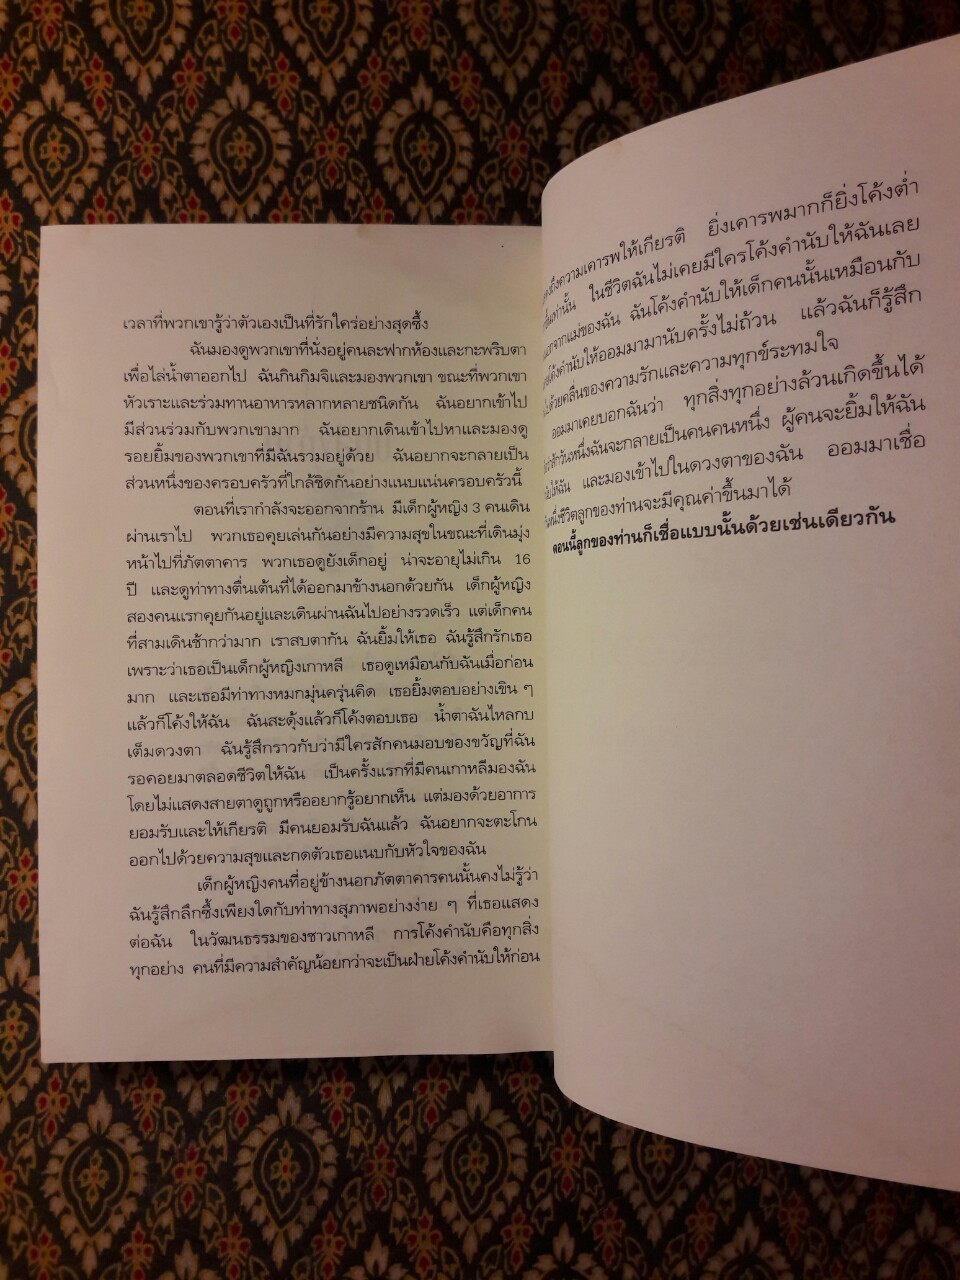 เวลาที่พวกเขารู้ว่าตัวเองเป็นที่รักใคร่อย่างสุดซึ้ง
ฉันมองดูพวกเขาที่นั่งอยู่คนละฟากห้องและกะพริบตา
เพื่อไล่น้ำตาออกไป ฉันกินกิมจิและมองพวกเขา ขณะที่พวกเขา
หัวเราะและร่วมทานอาหารหลากหลายชนิดกัน ฉันอยากเข้าไป
มีส่วนร่วมกับพวกเขามาก ฉันอยากเดินเข้าไปหาและมองดู
รอยยิ้มของพวกเขาที่มีฉันรวมอยู่ด้วย ฉันอยากจะกลายเป็น
ส่วนหนึ่งของครอบครัวที่ใกล้ชิดกันอย่างแนบแน่นครอบครัวนี้
ตอนที่เรากำลังจะออกจากร้าน มีเด็กผู้หญิง 3 คนเดิน
ผ่านเราไป พวกเธอคุยเล่นกันอย่างมีความสุขในขณะที่เดินมุ่ง
หน้าไปที่ภัตตาคาร พวกเธอดูยังเด็กอยู่ น่าจะอายุไม่เกิน 16
ปี และดูท่าทางตื่นเต้นที่ได้ออกมาข้างนอกด้วยกัน เด็กผู้หญิง
สองคนแรกคุยกันอยู่และเดินผ่านฉันไปอย่างรวดเร็ว แต่เด็กคน
ที่สามเดินช้ากว่ามาก เราสบตากัน ฉันยิ้มให้เธอ ฉันรู้สึกรักเธอ
เพราะว่าเธอเป็นเด็กผู้หญิงเกาหลี เธอดูเหมือนกับฉันเมื่อก่อน
มาก และเธอมีท่าทางหมกมุ่นครุ่นคิด เธอยิ้มตอบอย่างเขิน ๆ
แล้วก็โค้งให้ฉัน ฉันสะดุ้งแล้วก็โค้งตอบเธอ น้ำตาฉันไหลกบ
เต็มดวงตา ฉันรู้สึกราวกับว่ามีใครสักคนมอบของขวัญที่ฉัน
รอคอยมาตลอดชีวิตให้ฉัน เป็นครั้งแรกที่มีคนเกาหลีมองฉัน
โดยไม่แสดงสายตาดูถูกหรืออยากรู้อยากเห็น แต่มองด้วยอาการ
ยอมรับและให้เกียรติ มีคนยอมรับฉันแล้ว ฉันอยากจะตะโกน
ออกไปด้วยความสุขและกดตัวเธอแนบกับหัวใจของฉัน
เด็กผู้หญิงคนที่อยู่ข้างนอกภัตตาคารคนนั้นคงไม่รู้ว่า
ฉันรู้สึกลึกซึ้งเพียงใดกับท่าทางสุภาพอย่างง่าย ๆ ที่เธอแสดง
ต่อฉัน ในวัฒนธรรมของชาวเกาหลี การโค้งคำนับคือทุกสิ่ง
ทุกอย่าง คนที่มีความสำคัญน้อยกว่าจะเป็นฝ่ายโค้งคำนับให้ก่อน
ถึงความเคารพให้เกียรติ ยิ่งเคารพมากก็ยิ่งโค้งต่ำ
เท่านั้น ในชีวิตฉันไม่เคยมีใครโค้งคำนับให้ฉันเลย
จากแม่ของฉัน ฉันโค้งคำนับให้เด็กคนนั้นเหมือนกับ
โค้งคำนับให้ออมมามานับครั้งไม่ถ้วน แล้วฉันก็รู้สึก
ด้วยคลื่นของความรักและความทุกข์ระทมใจ
ออมมาเคยบอกฉันว่า ทุกสิ่งทุกอย่างล้วนเกิดขึ้นได้
สักวันหนึ่งฉันจะกลายเป็นคนคนหนึ่ง ผู้คนจะยิ้มให้ฉัน
ให้ฉัน และมองเข้าไปในดวงตาของฉัน ออมมาเชื่อ
ชีวิตลูกของท่านจะมีคุณค่าขึ้นมาได้
ตอนนี้ลูกของท่านก็เชื่อแบบนั้นด้วยเช่นเดียวกัน